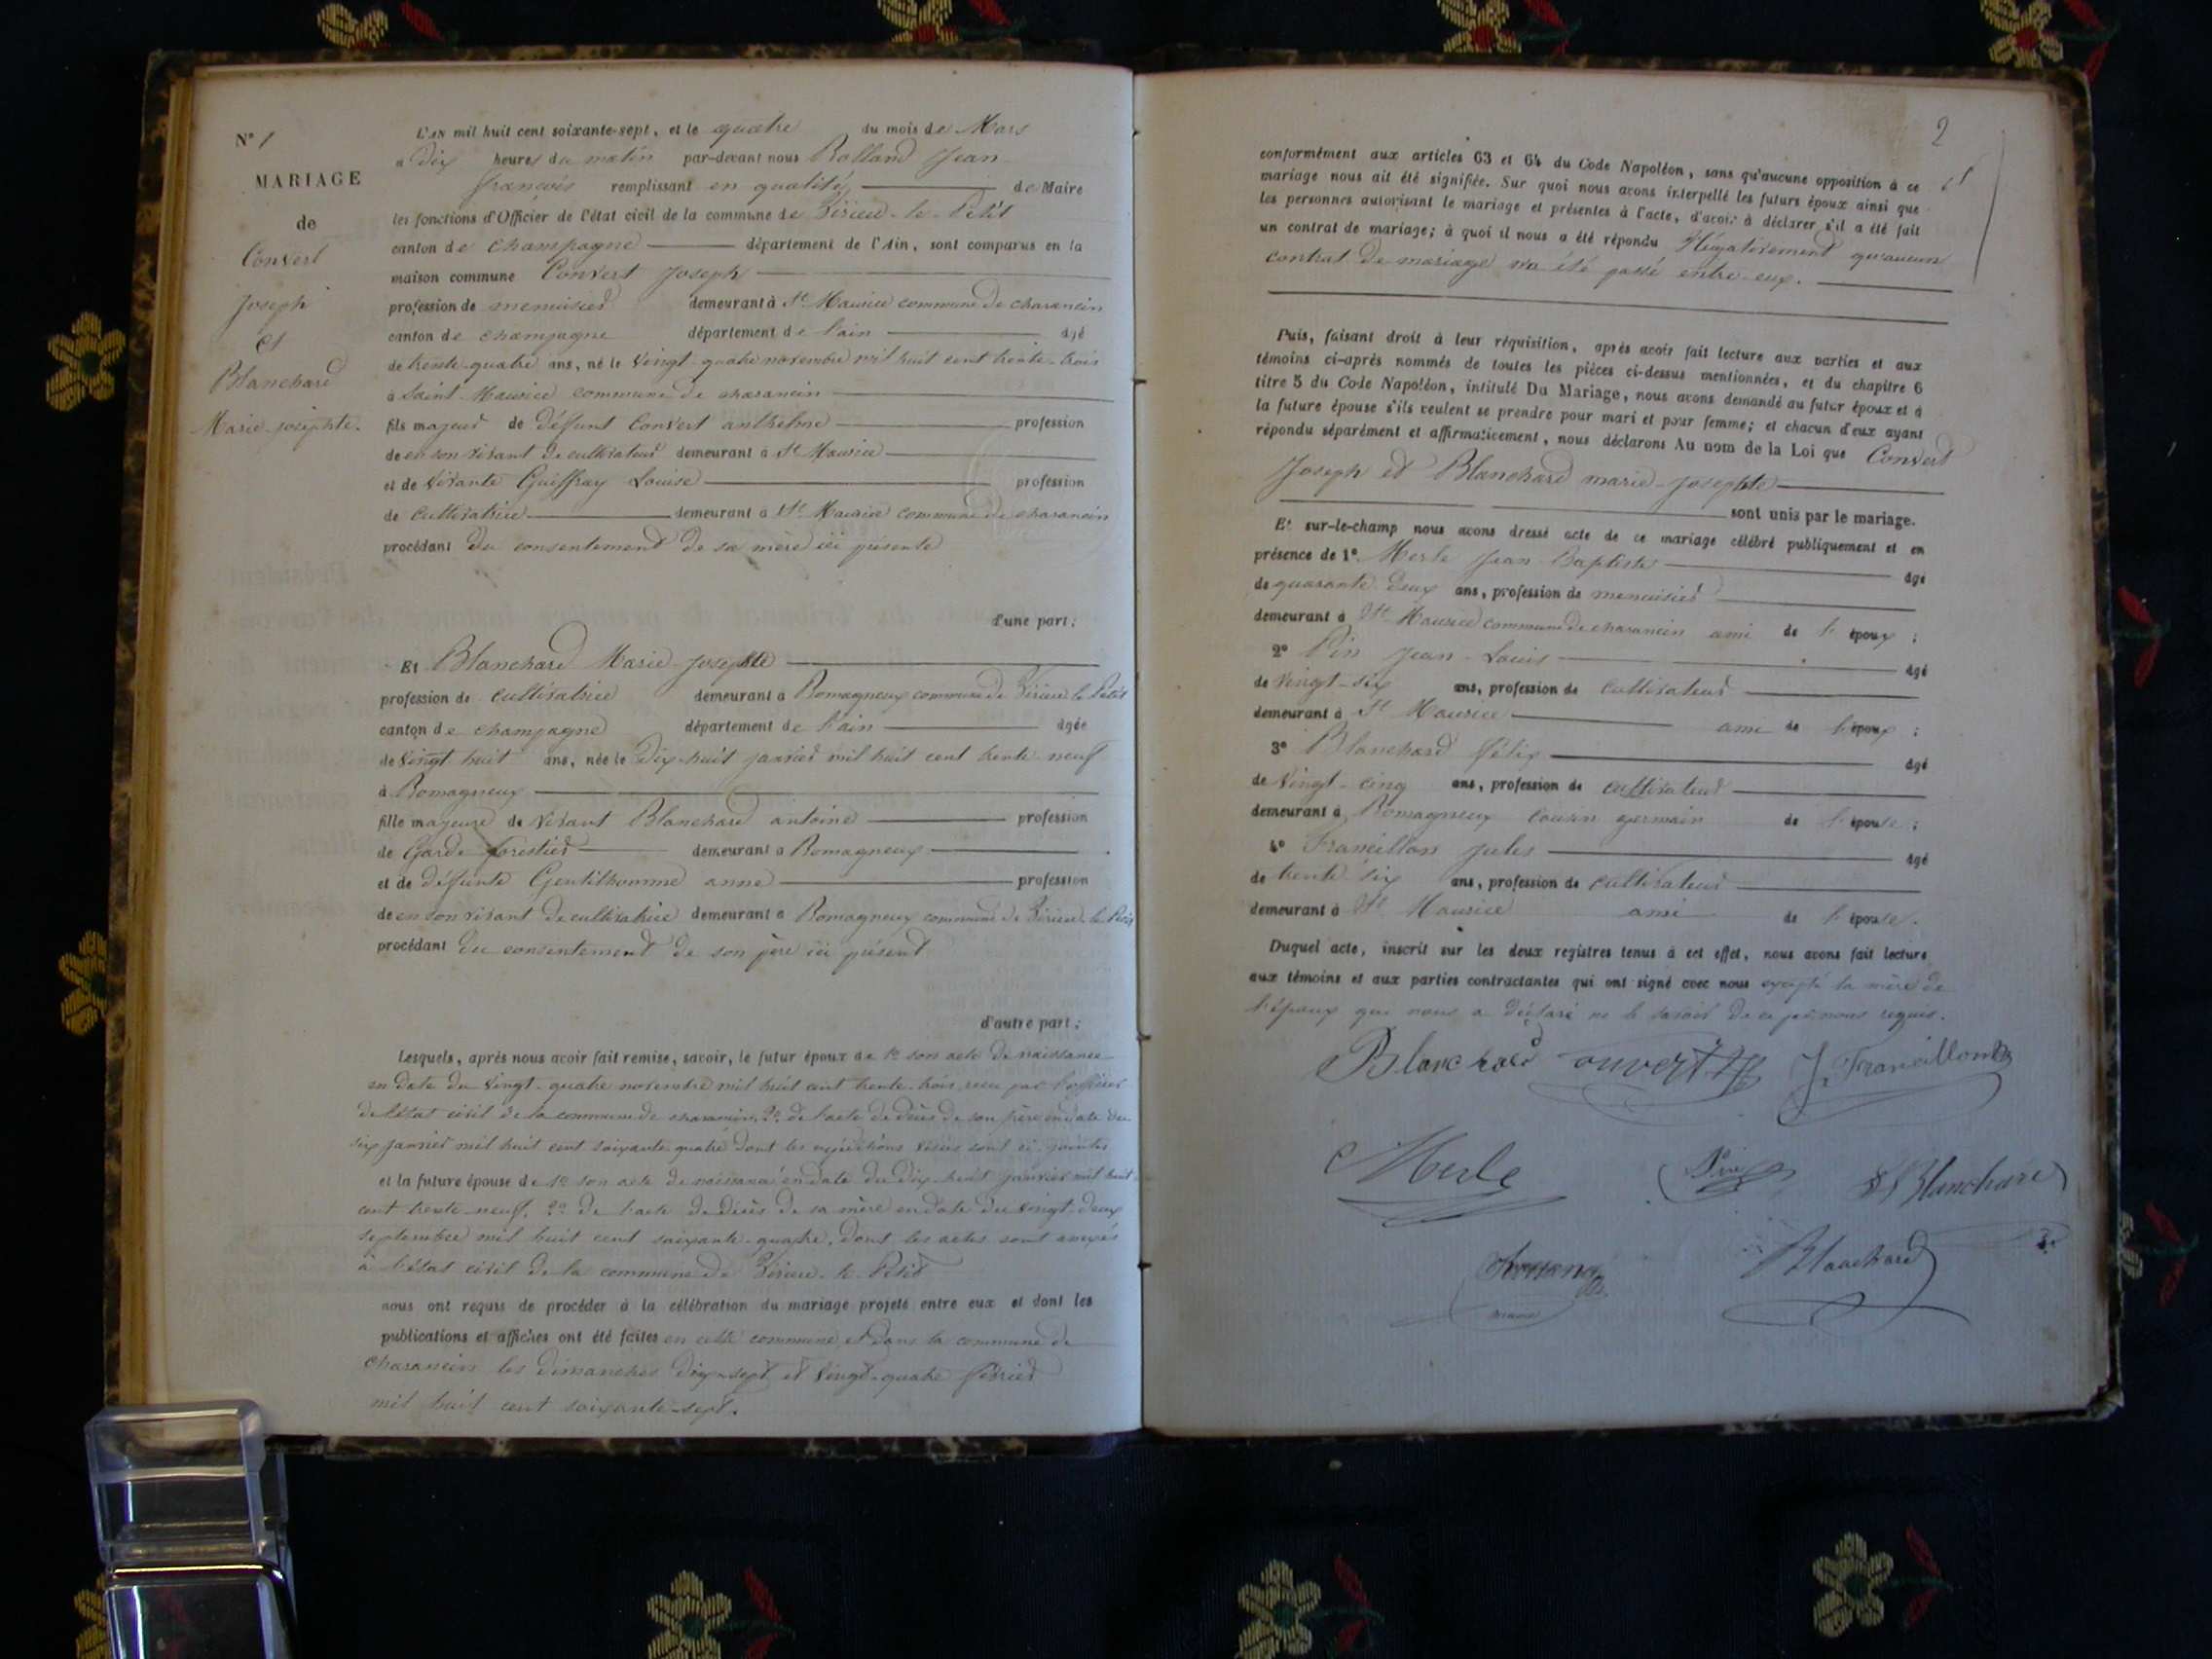 N° 1
MARIAGE
de
Convert
Joseph
et
Blanchard
Marie-josephte.
L'AN mil huit cent soixante-sept, et le quatre du mois de Mars
à dix heures du matin par-devant nous Rolland Jean
françois remplissant en qualité de Maire
les fonctions d'Officier de l'état civil de la commune de Virieu-le-Petit
canton de Champagne département de l'Ain, sont comparus en la
maison commune Convert Joseph
profession de menuisier demeurant à St Maurice commune de charancin
canton de champagne département de l'ain âgé
de trente-quatre ans, né le vingt-quatre novembre mil huit cent trente-trois
à Saint-Maurice commune de charancin
fils majeur de déffunt Convert anthelme profession
de en son vivant de cultivateur demeurant à St Maurice
et de vivante Guiffray Louise profession
de cultivatrice demeurant à St Maurice commune de charancin
procédant du consentement de sa mère ici présente
d'une part;
Et Blanchard Marie-Josephte
profession de cultivatrice demeurant à Romagneux commune de Virieu le Petit
canton de champagne département de l'ain âgée
de vingt huit ans, née le dix-huit janvier mil huit cent trente-neuf
à Romagneux
fille majeure de vivant Blanchard antoine profession
de Garde-forestier demeurant à Romagneux
et de déffunte Gentilhomme anne profession
de en son vivant de cultivatrice demeurant à Romagneux commune de Virieu-le-Petit
procédant du consentement de son père ici présent
d'autre part;
Lesquels, après nous avoir fait remise, savoir, le futur époux de 1° son acte de naissance
en date du vingt-quatre novembre mil huit cent trente-trois, reçu par l'officier
de l'état civil de la commune de charancin, 2° de l'acte de décès de son père en date du
six janvier mil huit cent soixante-quatre dont les expéditions visées sont ci-jointes
et la future épouse de 1° son acte de naissance en date du dix-huit janvier mil huit
cent trente-neuf. 2° de l'acte de décès de sa mère en date du vingt-deux
septembre mil huit cent soixante-quatre, dont les actes sont anexés
à l'état civil de la commune de Virieu-le-Petit
nous ont requis de procéder à la célébration du mariage projeté entre eux et dont les
publications et affiches ont été faites en cette commune, et dans la commune de
charancin les dimanches dix-sept et vingt-quatre février
mil huit cent soixante-sept.
2
conformément aux articles 63 et 64 du Code Napoléon, sans qu'aucune opposition à ce
mariage nous ait été signifiée. Sur quoi nous avons interpellé les futurs époux ainsi que
les personnes autorisant le mariage et présentes à l'acte, d'avoir à déclarer s'il a été fait
un contrat de mariage; à quoi il nous a été répondu Négativement qu'aucun
contrat de mariage n'a été passé entre-eux.
Puis, faisant droit à leur réquisition, après avoir fait lecture aux parties et aux
témoins ci-après nommés de toutes les pièces ci-dessus mentionnées, et du chapitre 6
titre 5 du Code Napoléon, intitulé Du Mariage, nous avons demandé au futur époux et à
la future épouse s'ils veulent se prendre pour mari et pour femme; et chacun d'eux ayant
répondu séparément et affirmativement, nous déclarons Au nom de la Loi que Convert
Joseph et Blanchard marie-Josephte
sont unis par le mariage.
Et sur-le-champ nous avons dressé acte de ce mariage célébré publiquement et en
présence de 1° Merle Jean Baptiste âgé
de quarante deux ans, profession de menuisier
demeurant à St Maurice commune de charancin ami de l'époux;
2° Pin Jean-Louis âgé
de vingt-six ans, profession de cultivateur
demeurant à St Maurice ami de l'époux;
3° Blanchard félix âgé
de vingt-cinq ans, profession de cultivateur
demeurant à Romagneux cousin germain de l'épouse;
4° Francillon Jules âgé
de trente six ans, profession de cultivateur
demeurant à St Maurice ami de l'épouse.
Duquel acte, inscrit sur les deux registres tenus à cet effet, nous avons fait lecture
aux témoins et aux parties contractantes qui ont signé avec nous excepté la mère de
l'époux qui nous a déclaré ne le savoir de ce par nous requis.
Blanchard J. Francillon
Merle Pin F Blanchard
Blanchard
maire